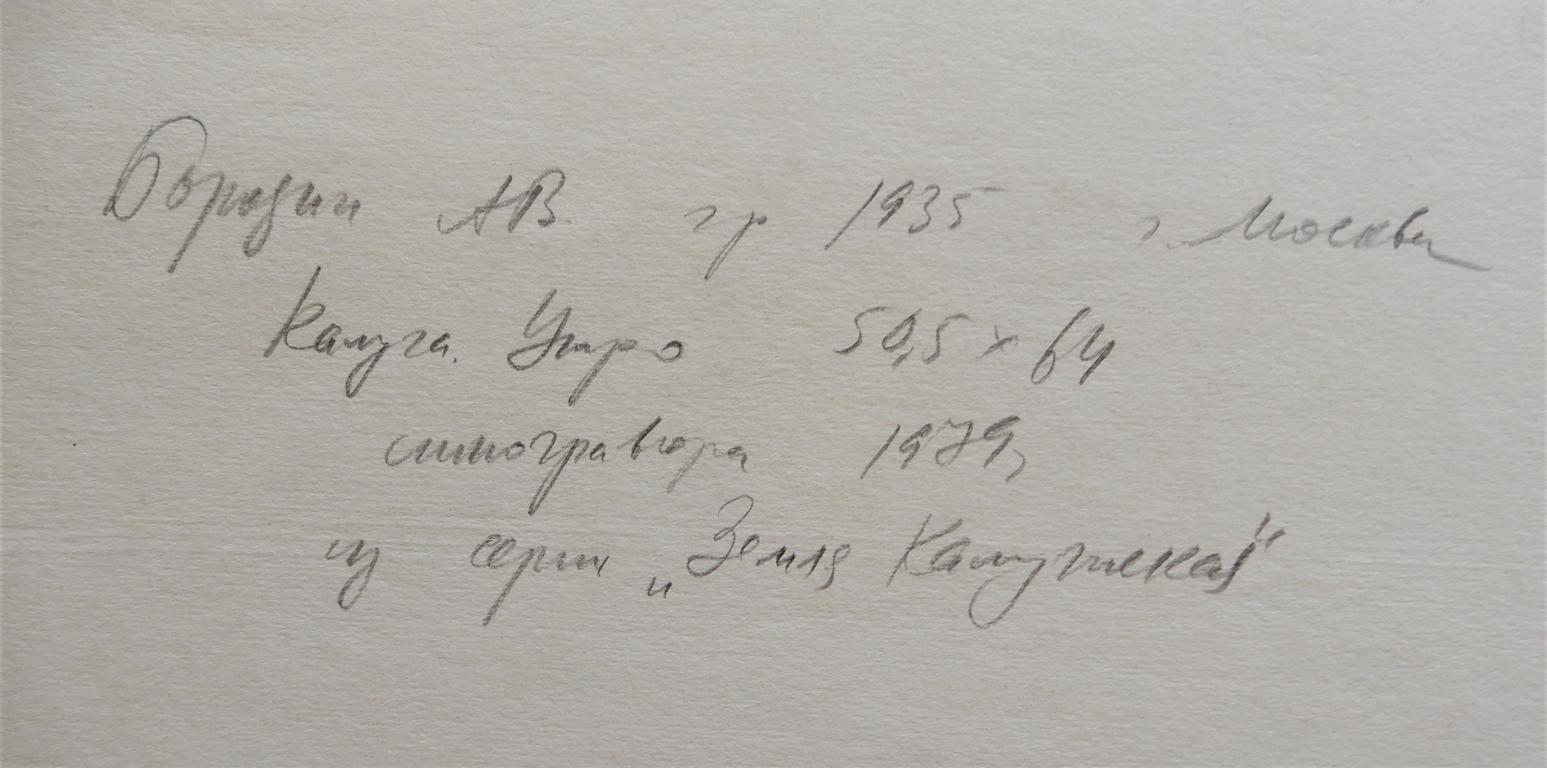 Бородин АВ гр 1935 г. Москва
Калуга. Утро 50,5 х 64
линогравюра 1979,
из серии „Земля Калужская"